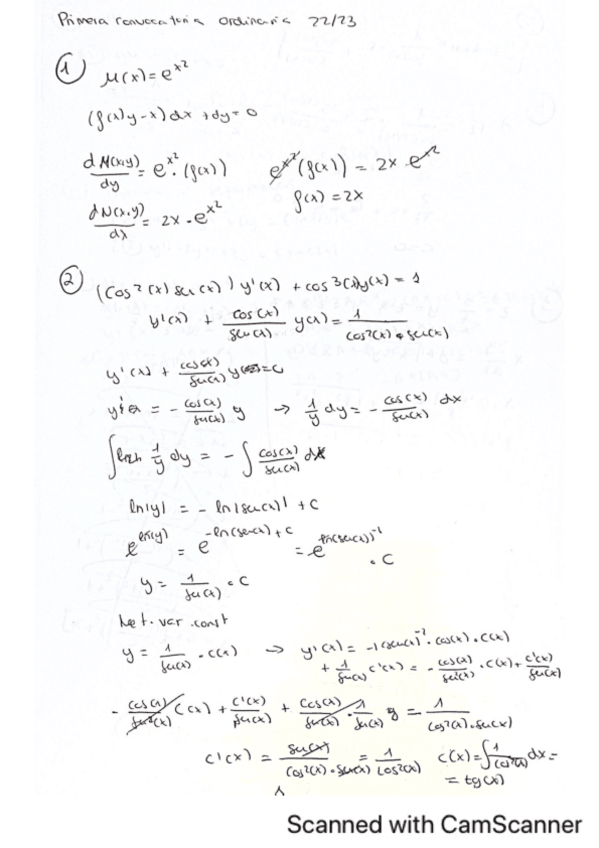 Primera convocatoria Ordinaria 22/23
① μ(x) = e^{x^2}
(f(x)y - x)dx + dy = 0
dM(x,y)/dy = e^{x^2} · (f(x))    e^{x^2}(f(x)) = 2x · e^{x^2}
dN(x,y)/dx = 2x · e^{x^2}    f(x) = 2x
② (cos^2(x) sen(x)) y'(x) + cos^3(x)y(x) = 1
y'(x) + cos(x)/sen(x) y(x) = 1/(cos^2(x) · sen(x))
y'(x) + cos(x)/sen(x) y = 0
y' = - cos(x)/sen(x) y → 1/y dy = - cos(x)/sen(x) dx
∫ 1/y dy = - ∫ cos(x)/sen(x) dx
ln|y| = - ln|sen(x)| + C
e^{ln(y)} = e^{-ln(sen(x)) + C} = e^{ln(sen(x))^{-1}} · C
y = 1/sen(x) · C
Met. var. const
y = 1/sen(x) · C(x) → y'(x) = -1(sen(x))^{-2} · cos(x) · C(x)
+ 1/sen(x) C'(x) = - cos(x)/sen^2(x) · C(x) + C'(x)/sen(x)
- cos(x)/sen^2(x) C(x) + C'(x)/sen(x) + cos(x)/sen(x) · 1/sen(x) y = 1/(cos^2(x) · sen(x))
C'(x) = sen(x)/(cos^2(x) · sen(x)) = 1/cos^2(x)    C(x) = ∫ 1/cos^2(x) dx =
= tg(x)
Scanned with CamScanner